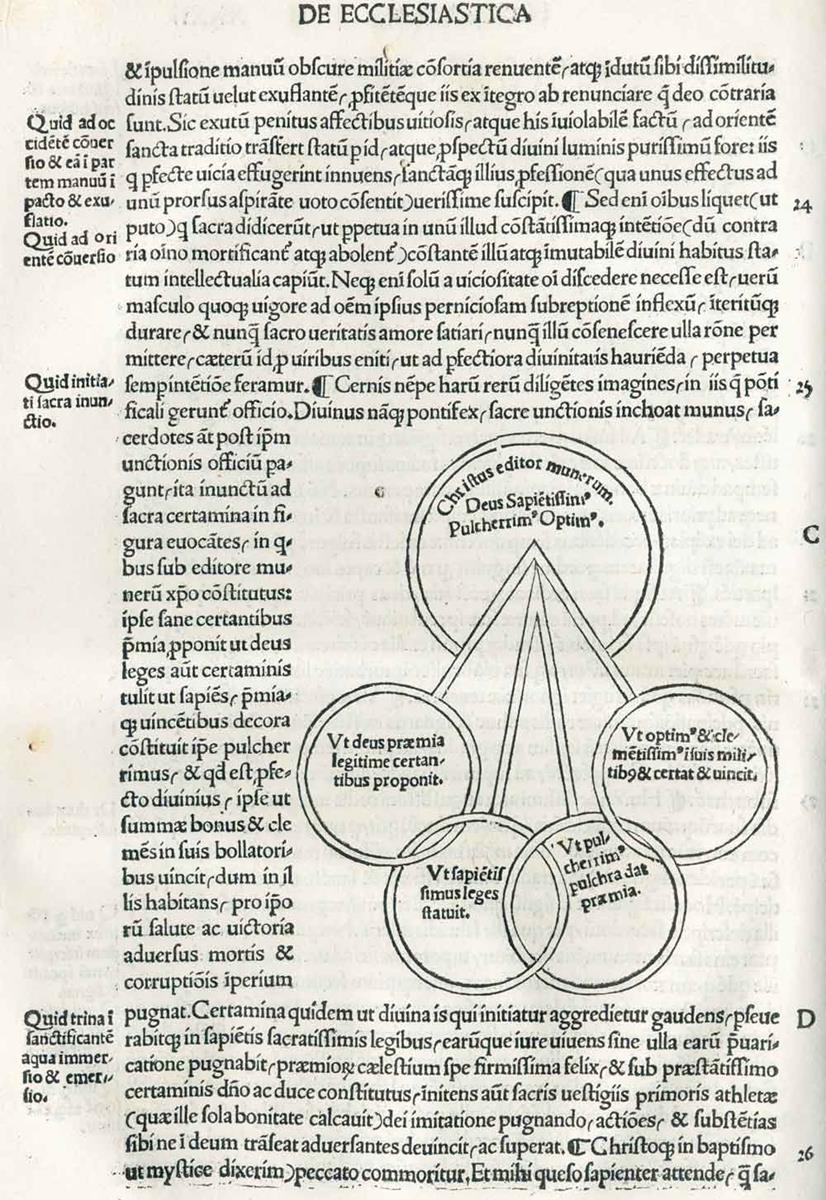 DE ECCLESIASTICA
& ĩpulsione manuũ obscure militiæ cõsortia renuentẽ, atq; ĩdutũ sibi dissimilitu-
dinis statũ uelut exuflantẽ, ꝓfitẽtẽque iis ex ĩtegro ab renunciare q̃ deo cõtraria
sunt. Sic exutũ penitus affectibus uitiosis, atque his ĩuiolabilẽ factũ, ad orientẽ
sancta traditio trãsfert statũ pid, atque, ꝓspectũ diuini luminis purissimũ fore: iis
q ꝑfecte uicia effugerint innuens, sanctãq; illius, ꝓfessionẽ (qua unus effectus ad
unũ prorsus aspirãte uoto cõsentit) uerissime suscipit. ¶ Sed enĩ oĩbus liquet (ut
puto) q sacra didicerũt, ut ꝑpetua in unũ illud cõstãtissimaq; intẽtiõe (dũ contra
ria oĩno mortificant᷑ atq; abolent᷑) cõstantẽ illũ atq; ĩmutabilẽ diuini habitus sta-
tum intellectualia capiũt. Neq; enĩ solũ a uiciositate oĩ discedere necesse est, uerũ
masculo quoq; uigore ad oẽm ipsius perniciosam subreptionẽ inflexũ, ĩteritũq;
durare, & nunq̃ sacro ueritatis amore satiari, nunq̃ illũ cõsenescere ulla rõne per
mittere, cæterũ id, ꝓ uiribus eniti, ut ad ꝑfectiora diuinitatis hauriẽda, perpetua
semp intẽtiõe feramur. ¶ Cernis nẽpe harũ rerũ diligẽtes imagines, in iis q̃ põti
ficali gerunt᷑ officio. Diuinus nãq; pontifex, sacre unctionis inchoat munus, sa-
cerdotes ãt post ip̃m
unctionis officiũ pa-
gunt, ita inunctũ ad
sacra certamina in fi-
gura euocãtes, in q-
bus sub editore mu-
nerũ xp̃o cõstitutus:
ipse sane certantibus
p̃mia, ꝓponit ut deus
leges aũt certaminis
tulit ut sapiẽs, p̃mia-
q; uincẽtibus decora
cõstituit ip̃e pulcher
rimus, & qd est, ꝑfe-
cto diuinius, ipse ut
summæ bonus & cle
mẽs in suis bollatori-
bus uincit, dum in il
lis habitans, pro ip̃o
rũ salute ac uictoria
aduersus mortis &
corruptiõis ĩperium
pugnat. Certamina quidem ut diuina is qui initiatur aggredietur gaudens, ꝑseue
rabitq; in sapiẽtis sacratissimis legibus, earũque iure uiuens sine ulla earũ p̃uari-
catione pugnabit, præmioꝝ cælestium spe firmissima felix, & sub præstãtissimo
certaminis dño ac duce constitutus, ĩnitens aũt sacris uestigiis primoris athletæ
(quæ ille sola bonitate calcauit) dei imitatione pugnando, actiões, & substẽtias
sibi ne ĩ deum trãseat aduersantes deuincit, ac superat. ¶ Christoq; in baptismo
ut mystice dixerim) peccato commoritur. Et mihi queso sapienter attende, q̃ sa-
Quid ad oc
cidẽtẽ cõuer
sio & eã ĩ par
tem manuũ ĩ
pacto & exu-
flatio.
Quid ad ori
entẽ cõuersio
Quid initia-
ti sacra inun-
ctio.
Quid trina ĩ
sanctificantẽ
aqua immer-
sio & emer-
sio.
24
25
C
D
26
Christus editor munerum.
Deus Sapiẽtissimꝰ
Pulcherrimꝰ Optimꝰ.
Vt deus præmia
legitime certan-
tibus proponit.
Vt optimꝰ & cle-
mẽtissimꝰ ĩ suis mili-
tibꝰ & certat & uincit.
Vt sapiẽtis
simus leges
statuit.
Vt pul-
cherrimꝰ
pulchra dat
præmia.